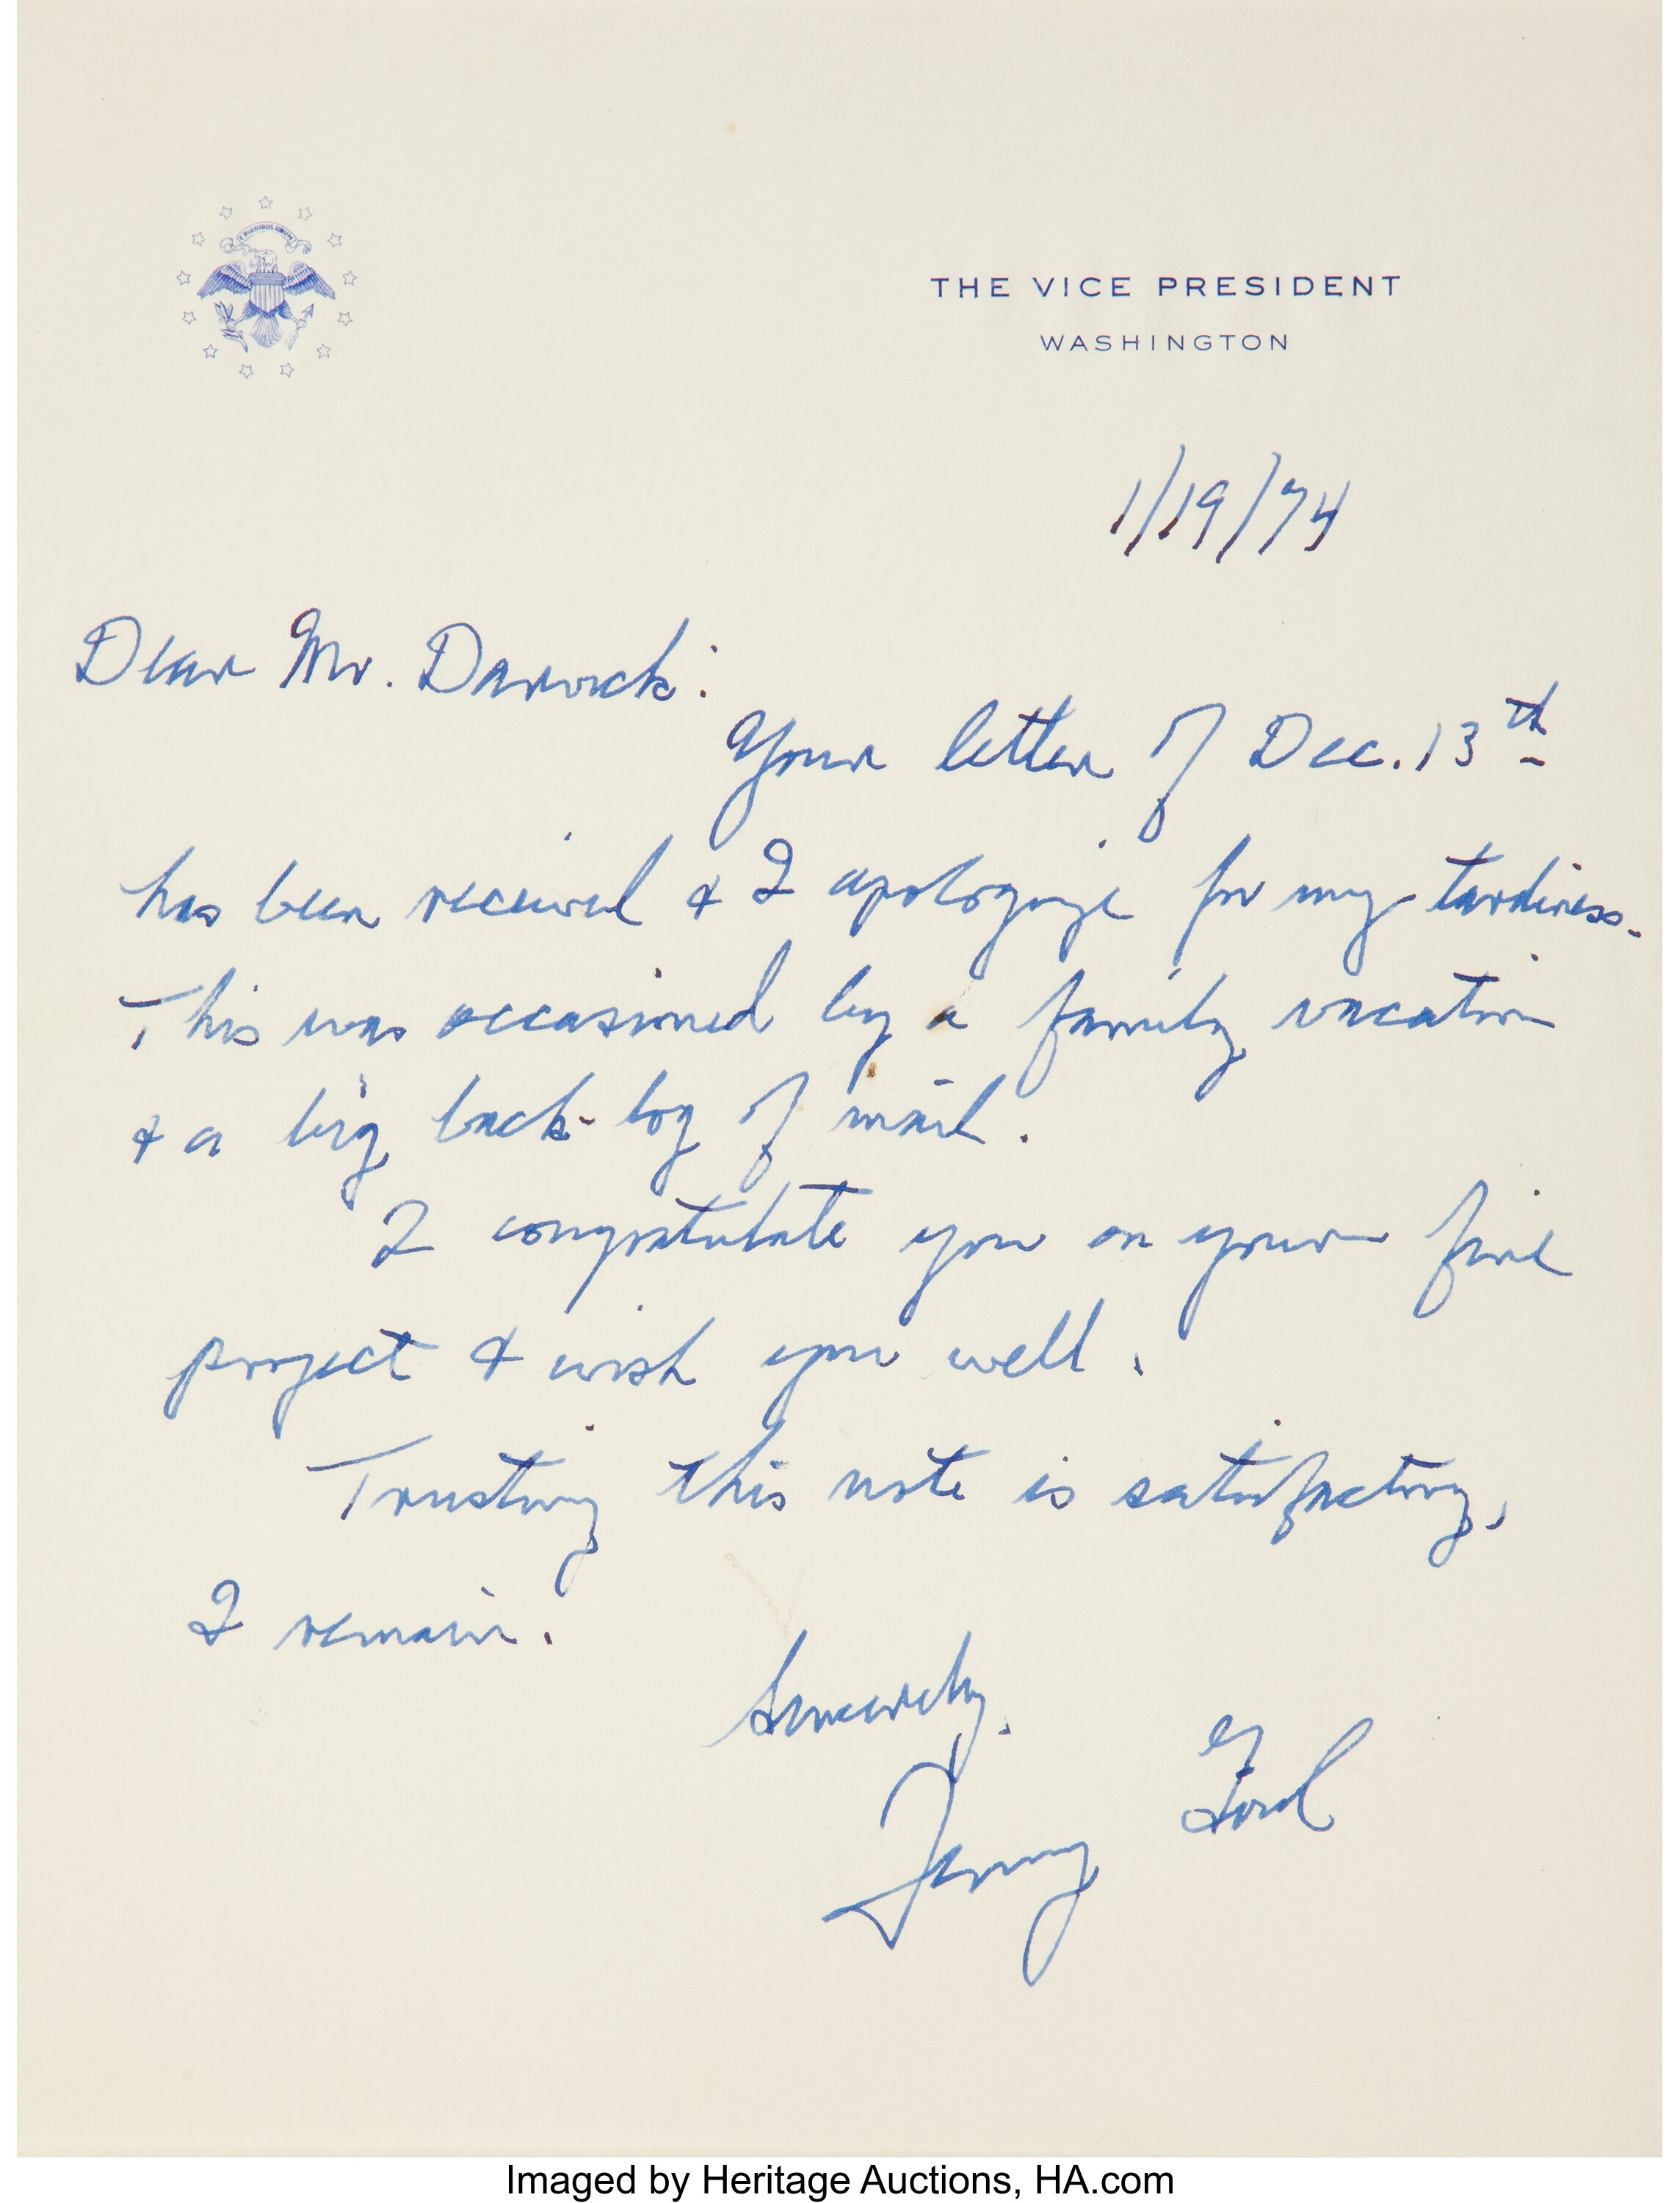 E PLURIBUS UNUM
THE VICE PRESIDENT
WASHINGTON
1/19/74
Dear Mr. Darvick:
Your letter of Dec. 13th
has been received & I apologize for my tardiness.
This was occasioned by a family vacation
& a big back-log of mail.
I congratulate you on your fine
project & wish you well.
Trusting this note is satisfactory,
I remain.
Sincerely,
Jerry Ford
Imaged by Heritage Auctions, HA.com